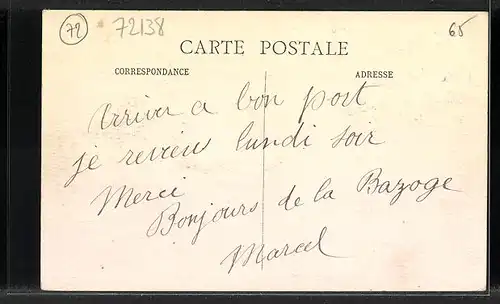 72 72138 65
CARTE POSTALE
CORRESPONDANCE ADRESSE
Arriver a bon port
je reviens lundi soir
Merci
Bonjours de la Bazoge
Marcel